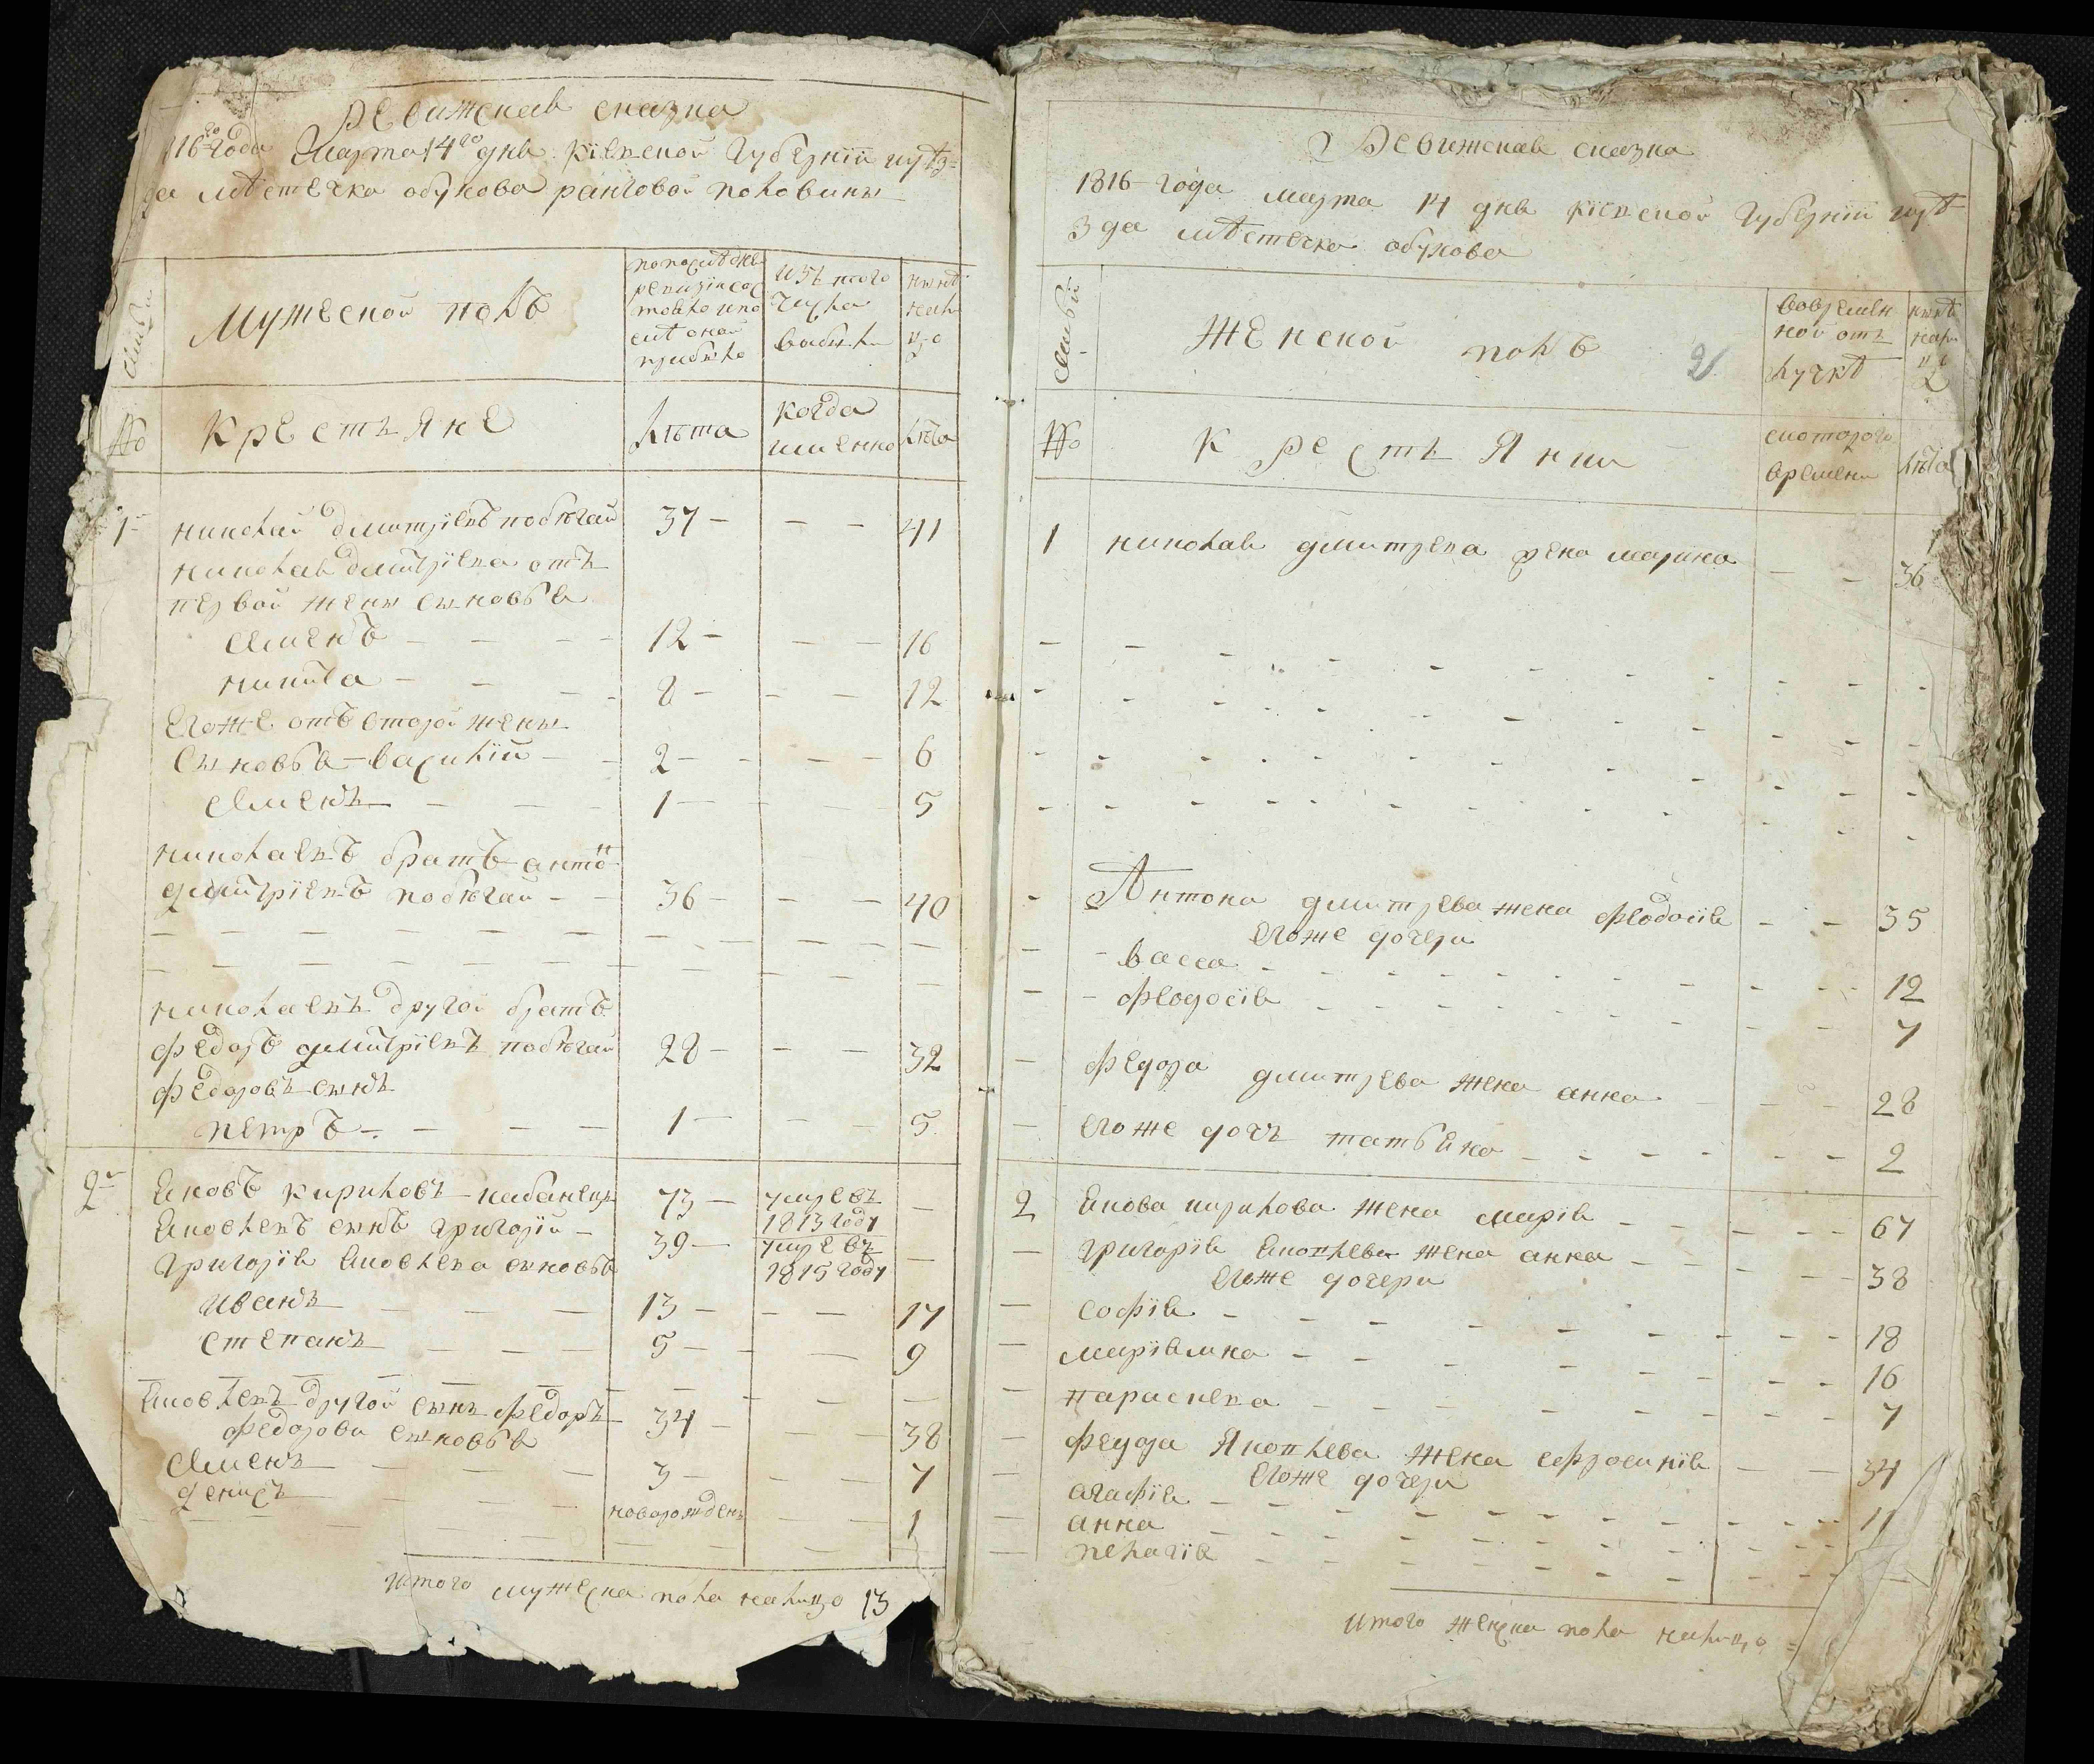 Ревижская сказка
116го года Марта 14го дня Кіевской Губернїи уѣз-
да мѣстечка обухова ранговой половины
семьи
Мужеской полъ
по послѣдней
ревизіи сос
тояло и по
слѣ оной
прибыло
изъ того
числа
выбыло
нынѣ
нали
цо
№
Крестьяне
лѣта
когда
именно
лѣта
1
николай дмитріевъ побѣгай 37 41
николая дмитріева отъ
первой жены сыновья
Семенъ 12 16
никита 8 12
Егоже отъ второй жены
Сыновья василій 2 6
Семенъ 1 5
николаевъ братъ антонъ
дмитріевъ побѣгай 36 40
николаевъ другой братъ
федоръ дмитріевъ побѣгай 28 32
федоровъ сынъ
петръ 1 5
2
Яковъ кириловъ кабанецъ 73 умре въ
1813 году
Яковлевъ сынъ григорій 39 умре въ
1815 году
Григорія Яковлева сыновья
иванъ 13 17
степанъ 5 9
Яковлевъ другой сынъ федоръ 34 38
федорови сыновья
Семенъ 3 7
денисъ новорожденъ 1
Итого мужеска пола налицо 13
Ревижская сказка
1816 года марта 14 дня Кіевской Губернїи уѣ-
зда мѣстечка обухова
Семьи
Женской полъ 2
вовремен
ной от
лучкѣ
нынѣ
нали
цо
№
Крестьянки
скоторого
времени
лѣта
1 николая дмитрева жена марина 36
Антона дмитрева жена феодосія 35
Егоже дочери
васса 12
феодосія 7
федора дмитрева жена анна 28
Егоже дочь татьяна 2
2 Якова кирилова жена марія 67
григорія Яковлева жена анна 38
Егоже дочери
софія 18
маріямна 16
параскева 7
федора Яковлева жена ефросинія 34
Егоже дочери
агафія 11
анна
пелагія
Итого женска пола налицо